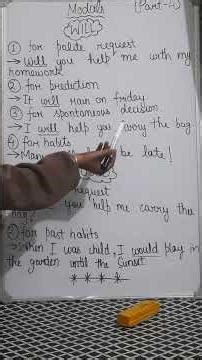 Modals (Part-4)
WILL
① for polite request
→ Will you help me with my
homework
② for prediction
→ It will rain on friday
③ for spontaneous decision
→ I will help you carry the bag
④ for habits
→ Many be late!
request
you help me carry the
② for past habits
→ When I was child, I would play in
the garden until the sunset